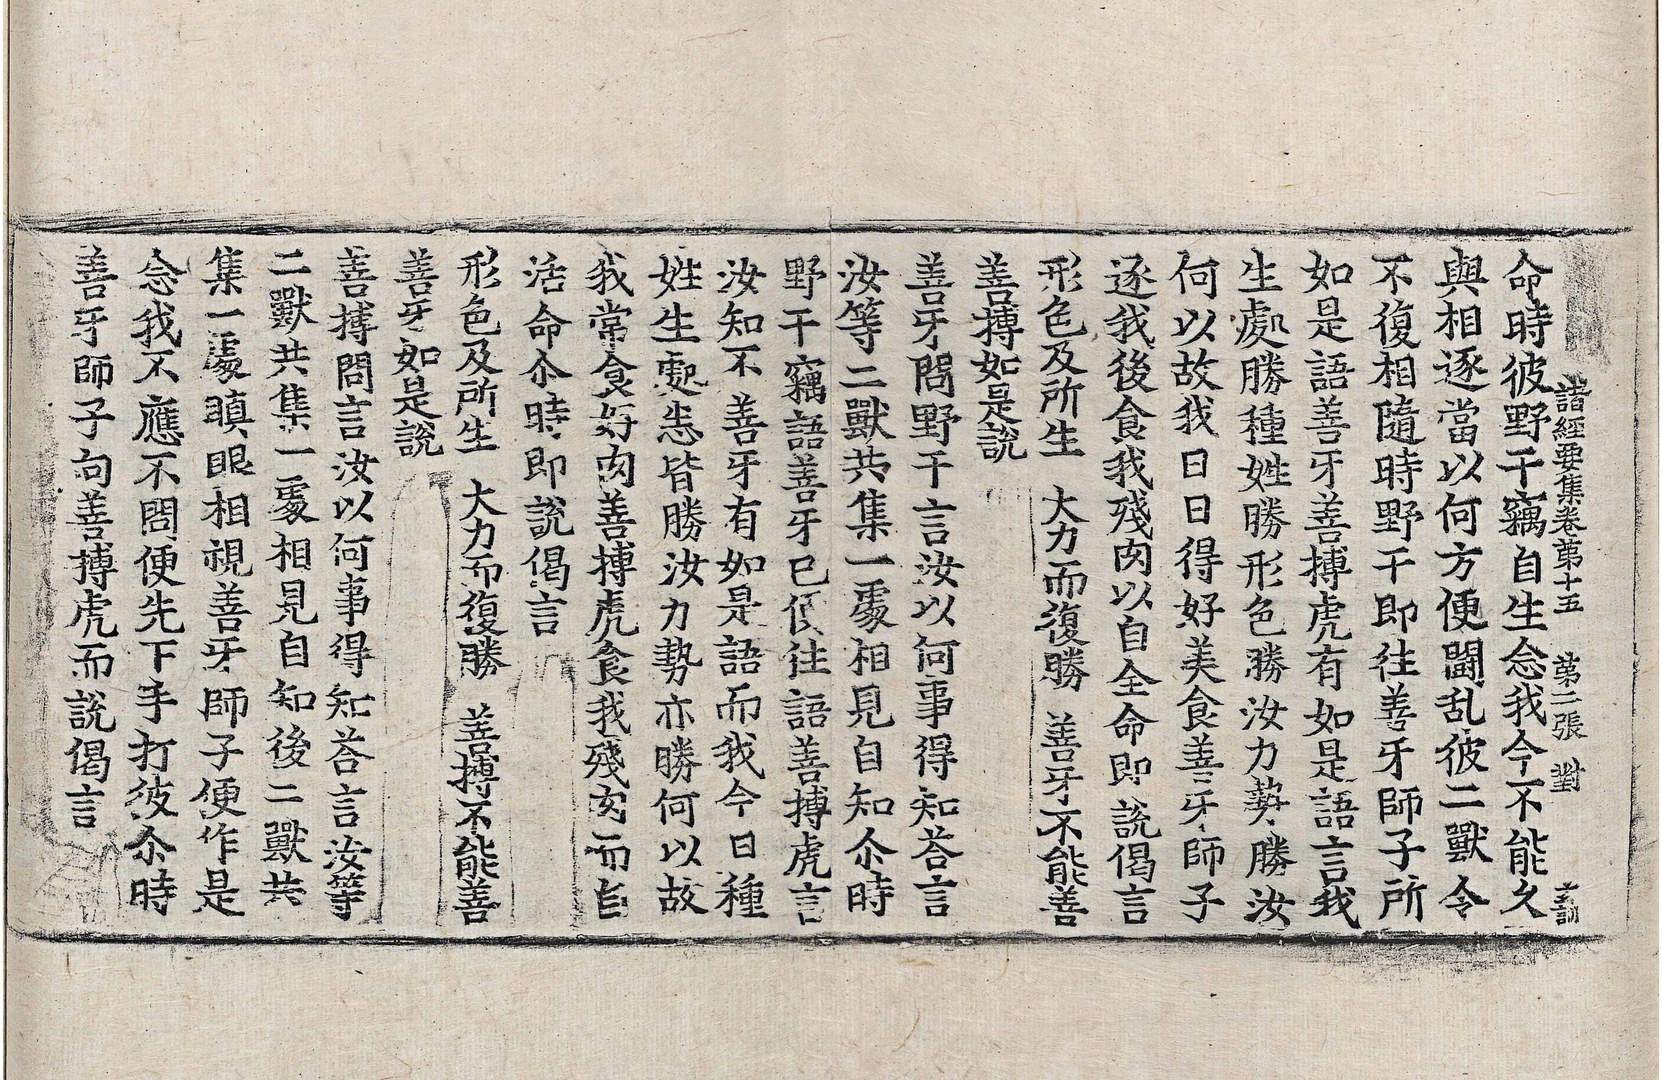 諸經要集卷第十五　第二張　對
命時彼野干竊自生念我今不能久
與相逐當以何方便鬪乱彼二獸令
不復相隨時野干即往善牙師子所
如是語善牙善搏虎有如是語言我
生處勝種姓勝形色勝汝力勢勝汝
何以故我日日得好美食善牙師子
逐我後食我殘肉以自全命即說偈言
形色及所生　大力而復勝　善牙不能善
善搏如是說
善牙問野干言汝以何事得知荅言
汝等二獸共集一處相見自知尒時
野干竊語善牙已便往語善搏虎言
汝知不善牙有如是語而我今日種
姓生處悉皆勝汝力勢亦勝何以故
我常食好肉善搏虎食我殘肉而自
活命尒時即說偈言
形色及所生　大力而復勝　善搏不能善
善牙如是說
善搏問言汝以何事得知荅言汝等
二獸共集一處相見自知後二獸共
集一處瞋眼相視善牙師子便作是
念我不應不問便先下手打彼尒時
善牙師子向善搏虎而說偈言